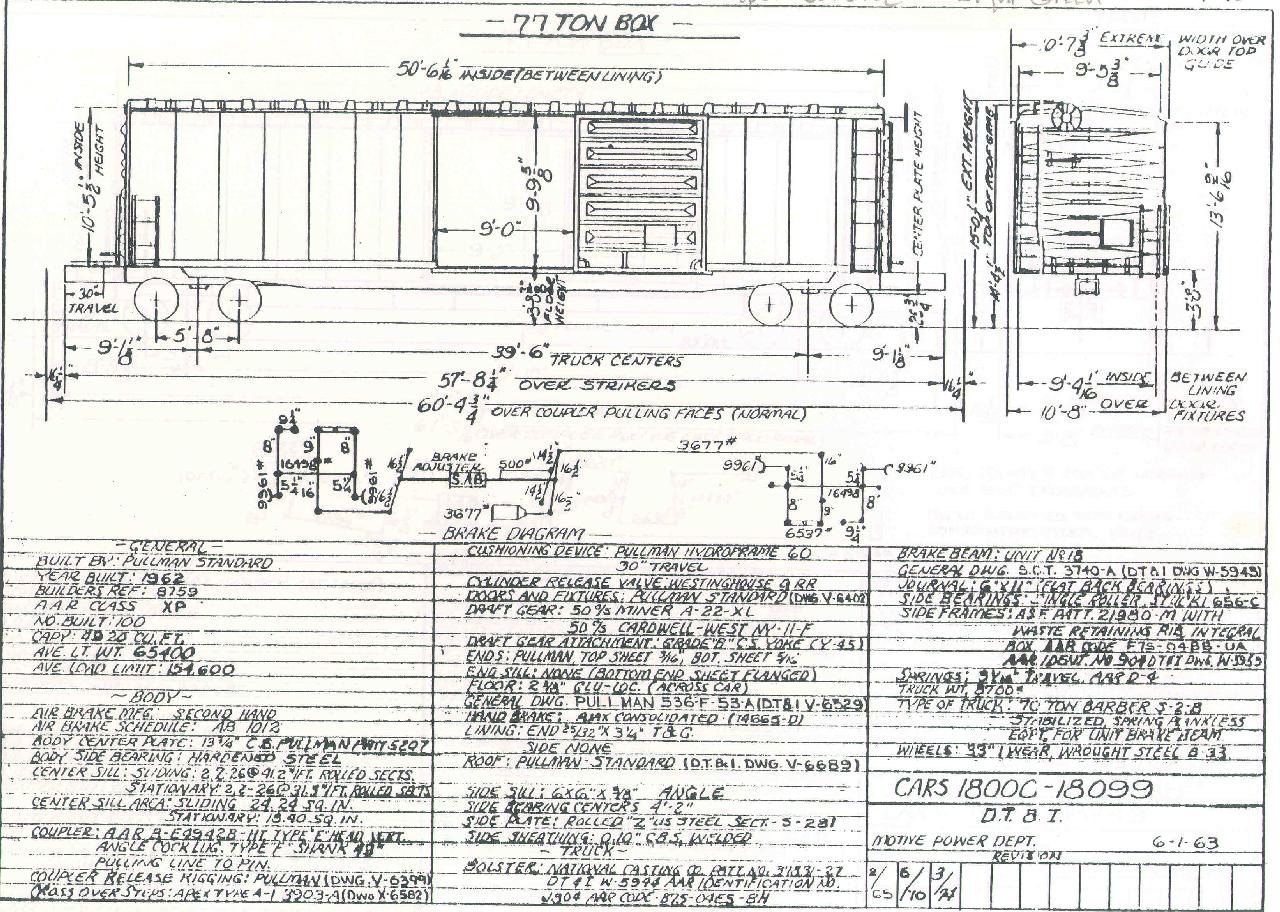 - 77 TON BOX -
50'-6 1/16" INSIDE (BETWEEN LINING)
10'-5 1/2" INSIDE HEIGHT
9'-9 3/8"
9'-0"
30" TRAVEL
5'-8"
9'-1 1/8"
39'-6" TRUCK CENTERS
9'-1 1/8"
16 1/4"
57'-8 1/4" OVER STRIKERS
16 1/4"
60'-4 3/4" OVER COUPLER PULLING FACES (NORMAL)
FLOOR HEIGHT
CENTER PLATE HEIGHT
10'-7 3/4" EXTREME
WIDTH OVER DOOR TOP GUIDE
9'-5 3/8"
EXT. HEIGHT
TOP OF ROOF
13'-6 9/16"
3'-8"
9'-4 1/16" INSIDE
BETWEEN LINING
10'-8" OVER
DOOR FIXTURES
9 1/4"
8" 9" 8"
9961#
16498#
5 1/4" 16" 5 1/4"
9961#
16 1/2"
16 1/2"
BRAKE ADJUSTER
S.A.B.
500#
14 1/2"
16 1/2"
14 1/2"
16 1/2"
3677#
3677#
9961#
16"
9961#
5 1/4"
16498
5 1/4"
8" 9" 8"
6537#
9 1/4"
- BRAKE DIAGRAM -
- GENERAL -
BUILT BY: PULLMAN STANDARD
YEAR BUILT: 1962
BUILDERS REF: 8759
A A R CLASS XP
NO. BUILT: 100
CAPY: 4920 CU. FT.
AVE. LT. WT. 65400
AVE. LOAD LIMIT: 154,600
~ BODY ~
AIR BRAKE MFG. SECOND HAND
AIR BRAKE SCHEDULE: AB 1012
BODY CENTER PLATE: 13 3/4" C.B. PULLMAN PATT 5207
BODY SIDE BEARING: HARDENED STEEL
CENTER SILL: SLIDING: 2, Z-26 @ 41.2#/FT. ROLLED SECTS.
STATIONARY: 2, Z-26 @ 31.3#/FT. ROLLED SECTS
CENTER SILL AREA: SLIDING 24.24 SQ. IN.
STATIONARY: 18.40 SQ. IN.
COUPLER: A.A.R. B-E4942B-HT TYPE "E" HEAD, VERT.
ANGLE COCK LUG. TYPE "F" SHANK
PULLING LINE TO PIN.
COUPLER RELEASE RIGGING: PULLMAN (DWG. V-6399)
CROSS OVER STEPS: APEX TYPE A-1 3903-A (DWG X-6582)
CUSHIONING DEVICE: PULLMAN HYDROFRAME 60
30" TRAVEL
CYLINDER RELEASE VALVE: WESTINGHOUSE 9 RR
DOORS AND FIXTURES: PULLMAN STANDARD (DWG. V-6402)
DRAFT GEAR: 50% MINER A-22-XL
50% CARDWELL-WEST NY-11-F
DRAFT GEAR ATTACHMENT: GRADE "B" C.S. YOKE (Y-45)
ENDS: PULLMAN, TOP SHEET 3/16", BOT. SHEET 5/16"
END SILL: NONE (BOTTOM END SHEET FLANGED)
FLOOR: 2 3/8" GLU-LOC. (ACROSS CAR)
GENERAL DWG. PULLMAN 536-F-53-A (DT&I V-6529)
HAND BRAKE: AJAX CONSOLIDATED (14665-D)
LINING: END 25/32" X 3 1/4" T & G.
SIDE NONE
ROOF: PULLMAN-STANDARD (D.T.& I. DWG. V-6689)
SIDE SILL: 6 X 6" X 3/8" ANGLE
SIDE BEARING CENTERS 4'-2"
SIDE PLATE: ROLLED "Z" US STEEL SECT.-S-281
SIDE SHEATHING: 0.10" C.B.S. WELDED
- TRUCK -
BOLSTER: NATIONAL CASTING CO
DT & I W-5944 AAR IDENTIFICATION NO.
AAR CODE-B75-04E5-BH
BRAKE BEAM: UNIT No 18
GENERAL DWG. S.C.T. 3740-A (DT&I DWG W-5943)
JOURNAL: 6" X 11" (FLAT BACK BEARINGS)
SIDE BEARINGS: SINGLE ROLLER, STUCKI 656-C
SIDE FRAMES: ASF PATT. 21980-M WITH
WASTE RETAINING RIB, INTEGRAL
BOX AAR CODE F7S-04BB-UA
AAR IDENT. NO 904 DT&I DWG. W-5959
SPRINGS: TRAVEL AAR D-4
TRUCK WT. 8700#
TYPE OF TRUCK: 70 TON BARBER S-2-B
STABILIZED, SPRING PLANKLESS
EQPT. FOR UNIT BRAKE BEAM
WHEELS: 33" 1 WEAR, WROUGHT STEEL B-33.
CARS 18000-18099
D.T. & I.
MOTIVE POWER DEPT. 6-1-63
REVISION
2/65 6/70 3/71